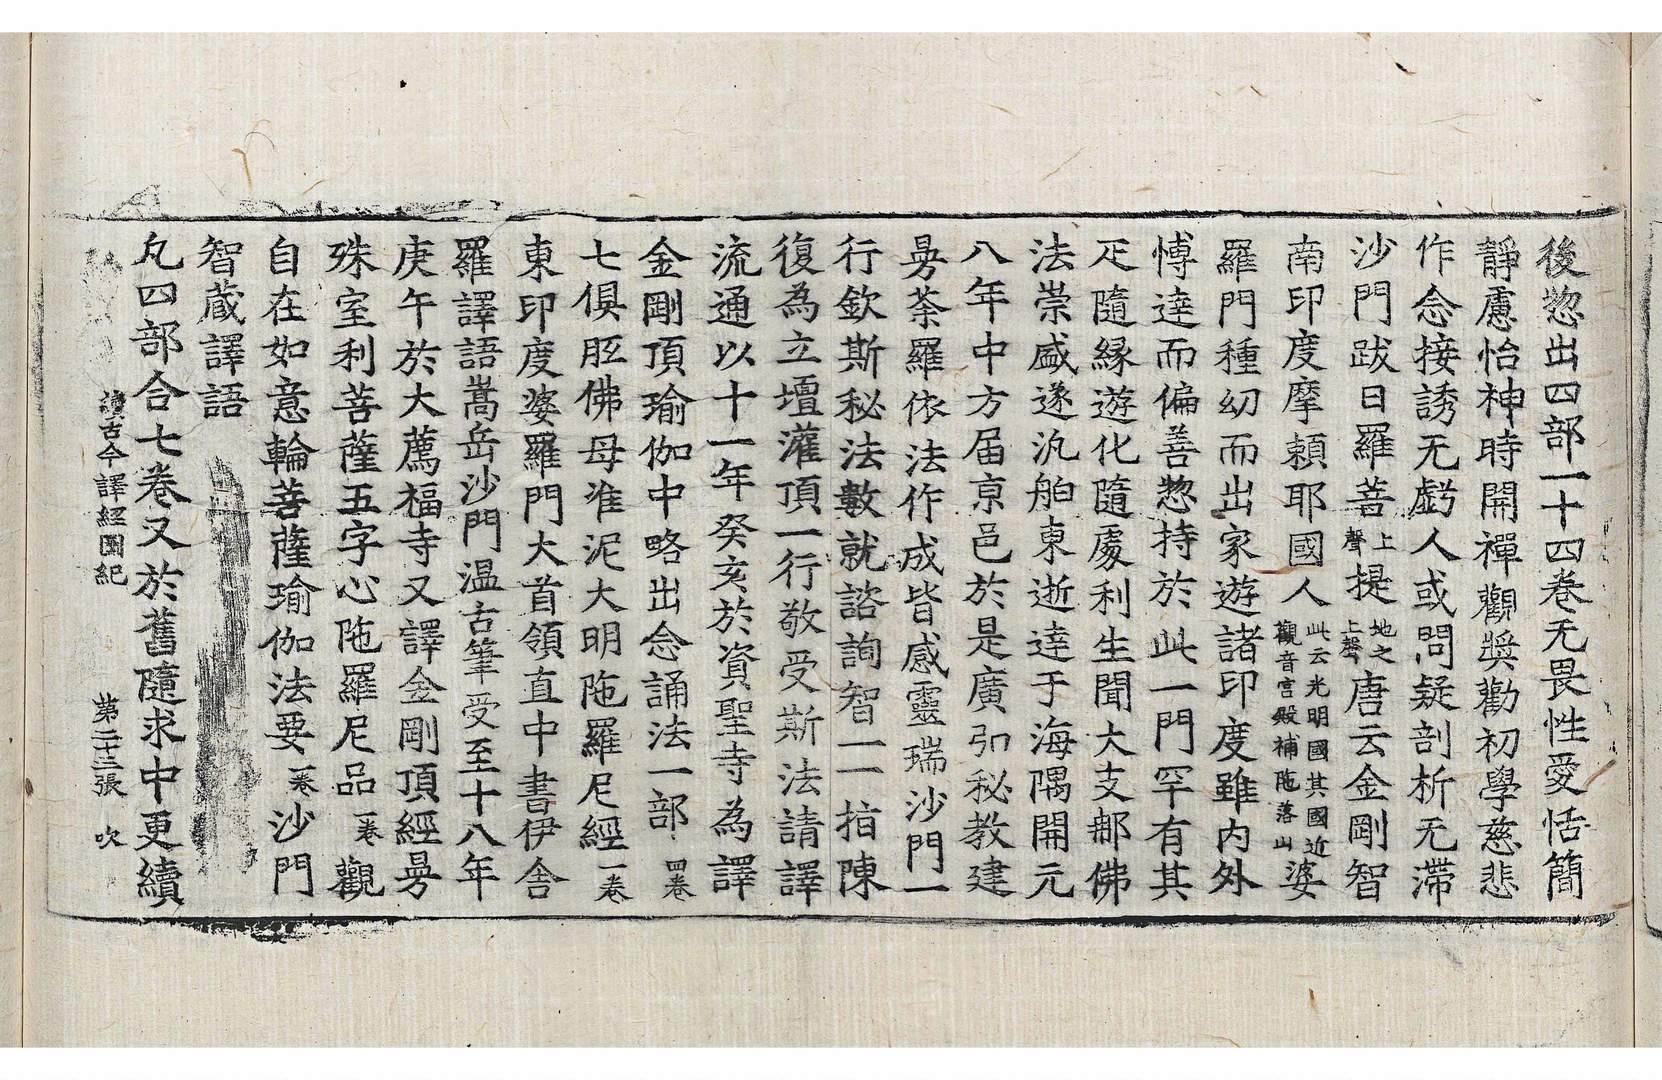 後惣出四部一十四卷无畏性愛恬簡
靜慮怡神時開禪觀奬勸初學慈悲
作念接誘无虧人或問疑剖析无滯
沙門跋日羅菩上聲提地之上聲唐云金剛智
南印度摩頼耶國人此云光明國其國近觀音宮殿補陁落山婆
羅門種幼而出家遊諸印度雖内外
博達而偏善惣持於此一門罕有其
疋隨縁遊化隨處利生聞大支那佛
法崇盛遂汎舶東逝達于海隅開元
八年中方届京邑於是廣弘秘教建
曼荼羅依法作成皆感靈瑞沙門一
行欽斯秘法數就諮詢智一一拍陳
復為立壇灌頂一行敬受斯法請譯
流通以十一年癸亥於資聖寺為譯
金剛頂瑜伽中略出念誦法一部四卷
七俱胝佛母准泥大明陁羅尼經一卷
東印度婆羅門大首領直中書伊舎
羅譯語嵩岳沙門温古筆受至十八年
庚午於大薦福寺又譯金剛頂經曼
殊室利菩薩五字心陁羅尼品一卷觀
自在如意輪菩薩瑜伽法要一卷沙門
智蔵譯語
凢四部合七卷又於舊隨求中更續
續古今譯經圖紀　第二十三張　吹